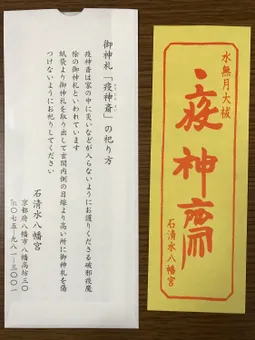 御神札「疫神斎」の祀り方
疫神斎は家の中に災いなどが入らないようにお護りくださる破邪疫魔
除の御神札といわれています
紙袋より御神札を取り出して玄関内側の目線より高い所に御神札を傷
つけないようにお祀りしてください
石清水八幡宮
京都府八幡市八幡高坊三〇
℡〇七五―九八一―三〇〇一
水無月大祓
疫神齋
石清水八幡宮